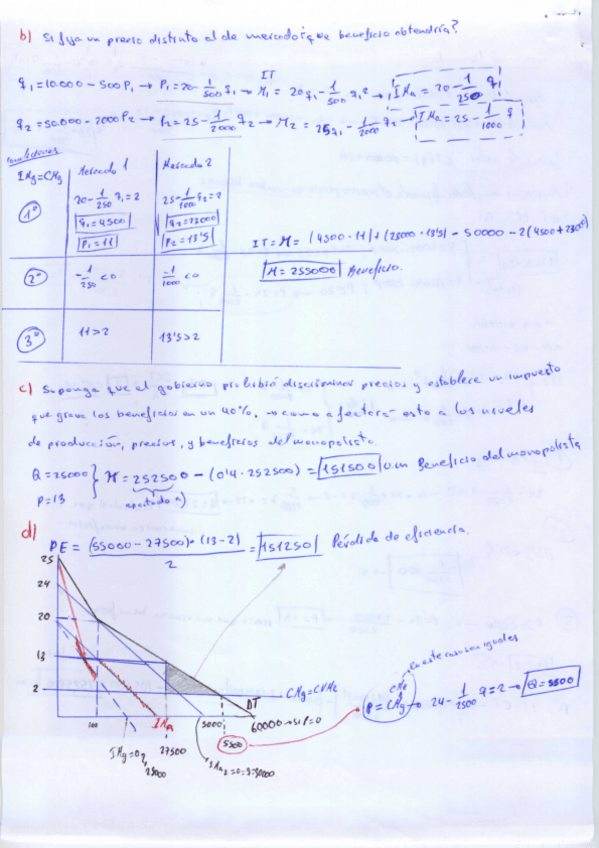 b) Si fija un precio distinto al de mercado ¿que beneficio obtendría?
IT
q1=10.000-500P1 → P1=20-1/500 q1 → M1 = 20q1-1/500 q1² → IMa = 20-1/250 q
q2=50.000-2000P2 → P2=25-1/2000 q2 → M2 = 25q1-1/2000 q2 → IMa = 25-1/1000 q
Condiciones
IMg=CMg
Mercado 1
Mercado 2
1º
20-1/250 q1=2
q1=4500
P1=11
25-1/1000 q2=2
q2=23000
P2=13'5
IT=M= (4500·11)+(23000·13'5)-50000-2(4500+23000)
M=255000 Beneficio.
2º
-1/250 <0
-1/1000 <0
3º
11>2
13'5>2
c) Suponga que el gobierno prohibió discriminar precios y establece un impuesto
que grava los beneficios en un 40%, → como afectará esto a los niveles
de producción, precios, y beneficios del monopolista.
Q=25000
P=13
M=252500-(0'4·252500)=151500 u.m Beneficio del monopolista
apartado a)
d)
PE = (55000-27500)·(13-2)/2 = 151250 Pérdida de eficiencia.
25
24
20
13
2
CMg=CVMe
DT
IMa
5000
60000→si P=0
27500
5500
IMg=0
25000
En este caso son iguales
CMe
P=CMg → 24-1/2500 q=2 → Q=5500